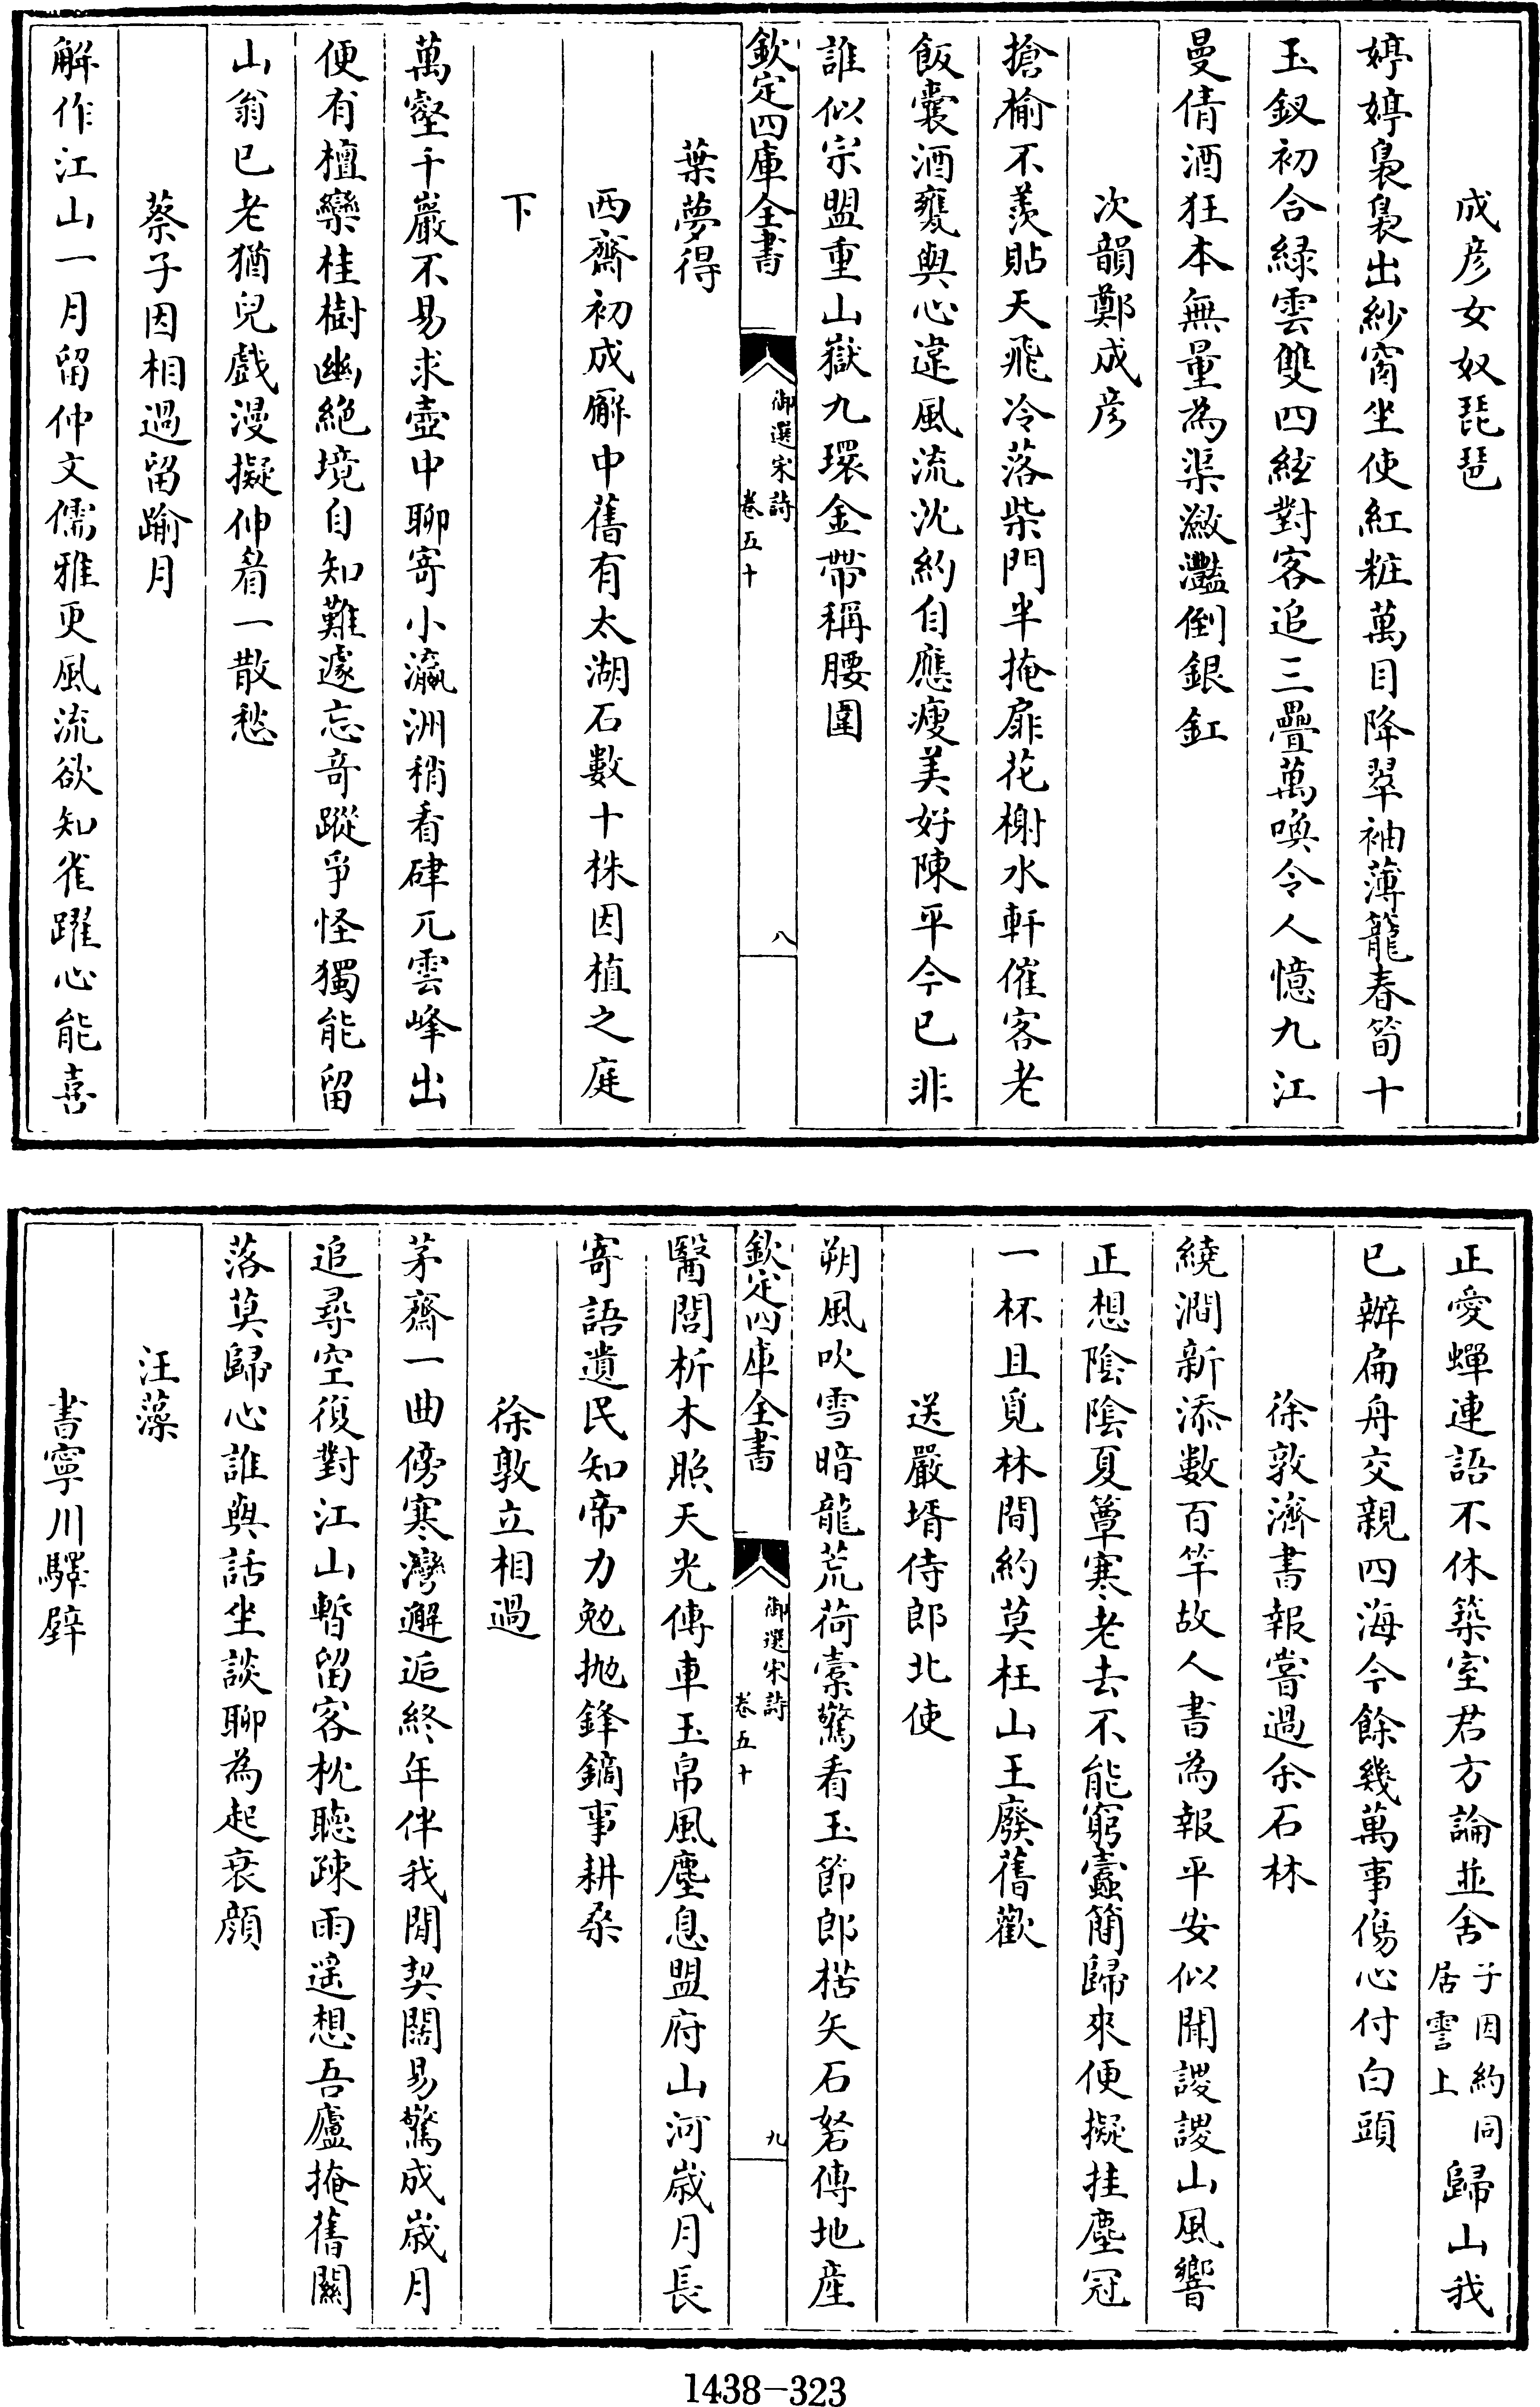 成彦女奴琵琶
婷婷裊裊出紗窗坐使紅粧萬目降翠袖薄籠春筍十
玉釵初合緑雲雙四絃對客追三疊萬喚令人憶九江
曼倩酒狂本無量為渠瀲灩倒銀釭
次韻鄭成彦
搶榆不羨貼天飛冷落柴門半掩扉花榭水軒催客老
飯囊酒甕與心違風流沈約自應瘦美好陳平今已非
誰似宗盟重山嶽九環金帶稱腰圍
欽定四庫全書
御選宋詩
卷五十
八
葉夢得
西齋初成廨中舊有太湖石數十株因植之庭
下
萬壑千巖不易求壺中聊寄小瀛洲稍看硉兀雲峰出
便有檀欒桂樹幽絶境自知難遽忘竒蹤爭怪獨能留
山翁已老猶兒戲漫擬伸眉一散愁
蔡子因相過留踰月
解作江山一月留仲文儒雅更風流欲知雀躍心能喜
正愛蟬連語不休築室君方論並舍子因約同居霅上歸山我
已辦扁舟交親四海今餘幾萬事傷心付白頭
徐敦濟書報嘗過余石林
繞澗新添數百竿故人書為報平安似聞謖謖山風響
正想陰陰夏簟寒老去不能窮蠹簡歸來便擬挂塵冠
一杯且覓林間約莫枉山王廢舊歡
送嚴壻侍郎北使
朔風吹雪暗龍荒荷橐驚看玉節郎楛矢石砮傳地産
醫閭析木照天光傳車玉帛風塵息盟府山河歳月長
寄語遺民知帝力勉抛鋒鏑事耕桒
徐敦立相過
茅齋一曲傍寒灣邂逅終年伴我閒契闊易驚成歳月
追尋空復對江山暫留客枕聽疎雨遥想吾廬掩舊關
落莫歸心誰與話坐談聊為起衰顔
欽定四庫全書
御選宋詩
卷五十
九
汪藻
書寧川驛壁
1438-323